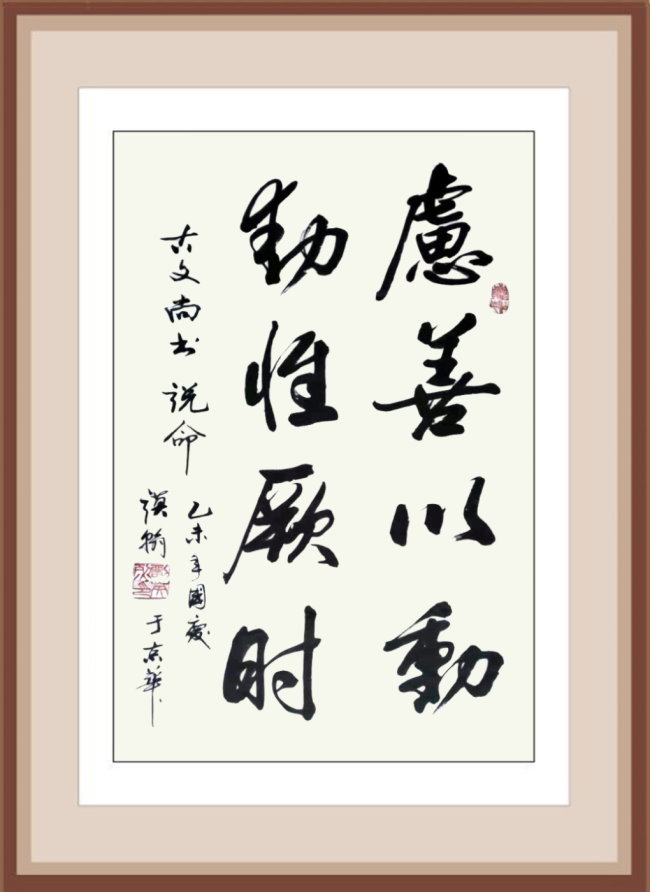 慮善以動
動惟厥时
古文尚书 说命
乙未年國慶
于京華